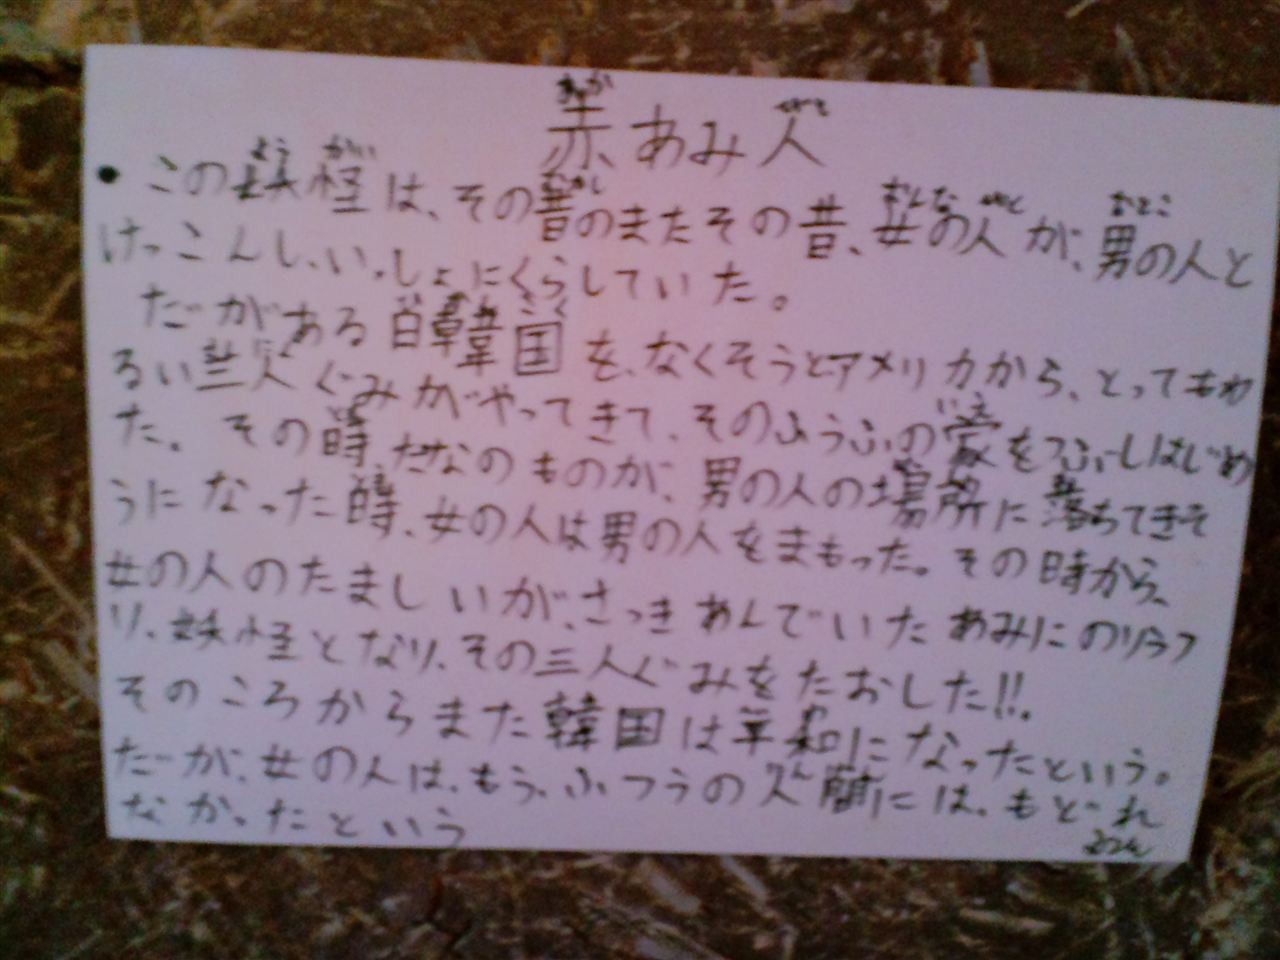 赤あみ人
・この妖怪は、その昔のまたその昔、女の人が、男の人と
けっこんし、いっしょにくらしていた。
だがある日韓国を、なくそうとアメリカから、とってもわ
るい三人ぐみがやってきて、そのふうふの家をつぶしはじめ
た。その時たなのものが、男の人の場所に落ちてきそ
うになった時、女の人は男の人をまもった。その時から、
女の人のたましいが、さっきあんでいたあみにのりうつ
り、妖怪となり、その三人ぐみをたおした!!
そのころからまた韓国は平和になったという。
だが、女の人は、もう、ふつうの人間には、もどれ
なかったという